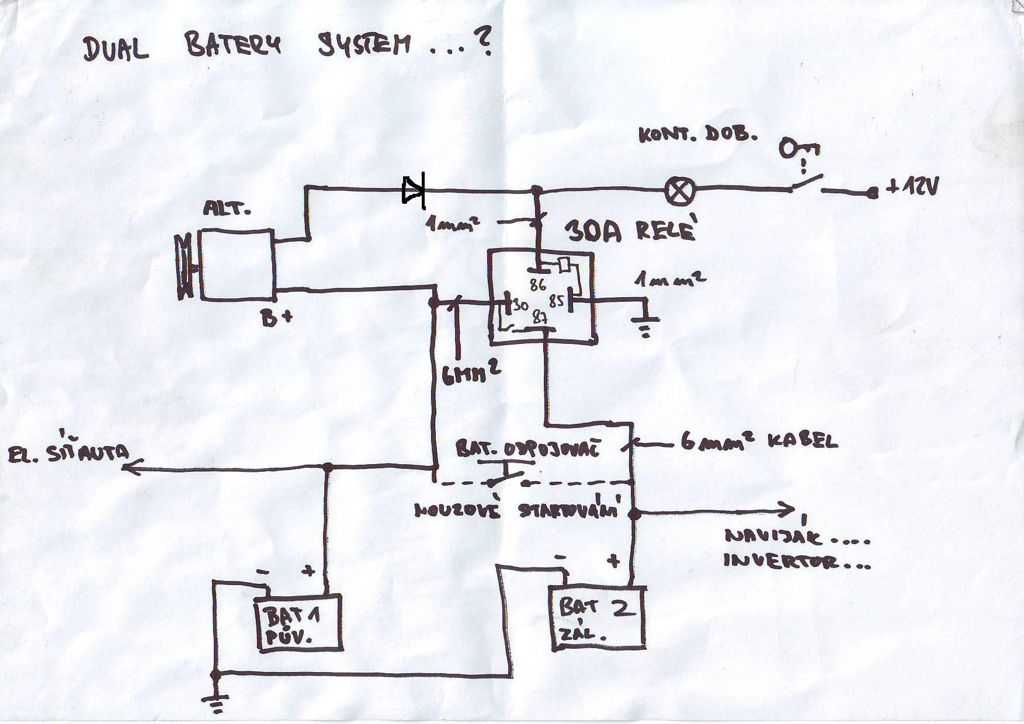 DUAL BATERY SYSTEM ...?
KONT. DOB.
+12V
ALT.
1mm²
30A RELÉ
1mm²
86
30
85
87
B+
6MM²
EL. SÍŤ AUTA
BAT. ODPOJOVAČ
6mm² KABEL
NOUZOVÉ STARTOVÁNÍ
NAVIJÁK....
INVERTOR...
- +
- +
BAT 1
PŮV.
BAT 2
ZÁL.